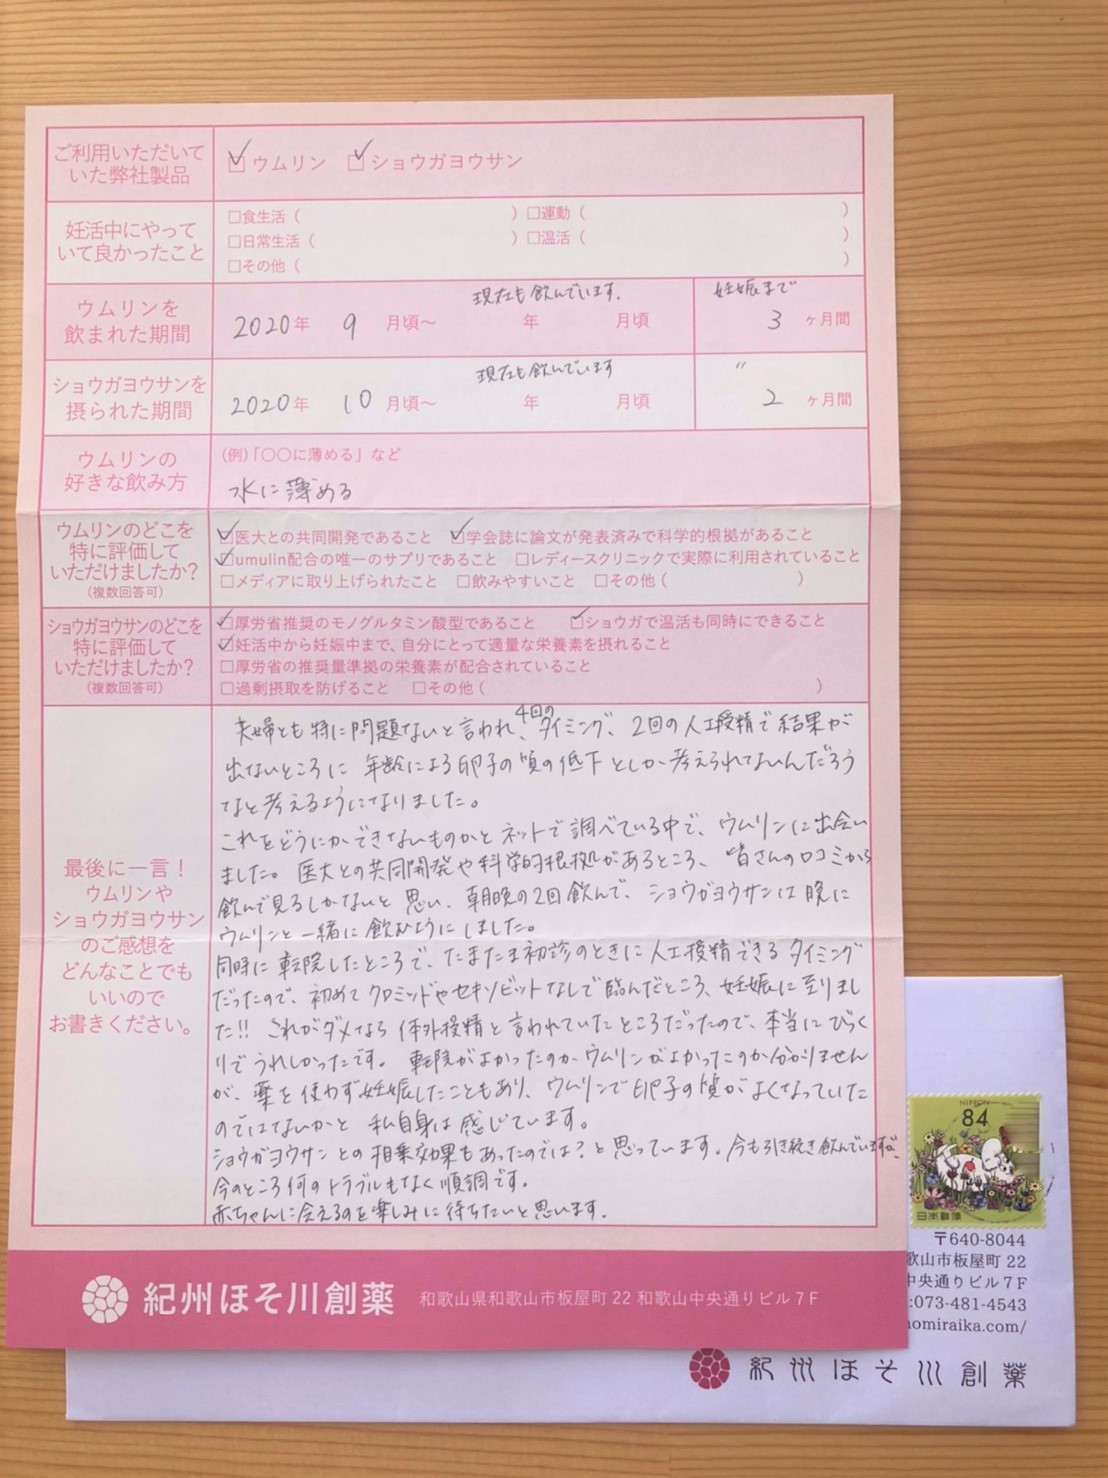 ご利用いただいて
いた弊社製品
☑ウムリン ☑ショウガヨウサン
妊活中にやって
いて良かったこと
□食生活（ ）□運動（ ）
□日常生活（ ）□温活（ ）
□その他（ ）
ウムリンを
飲まれた期間
現在も飲んでいます.
妊娠まで
2020年 9 月頃～ 年 月頃 3 ヶ月間
ショウガヨウサンを
摂られた期間
現在も飲んでいます
〃
2020年 10 月頃～ 年 月頃 2 ヶ月間
ウムリンの
好きな飲み方
（例）「〇〇に薄める」など
水に薄める
ウムリンのどこを
特に評価して
いただけましたか？
（複数回答可）
☑医大との共同開発であること ☑学会誌に論文が発表済みで科学的根拠があること
☑umulin配合の唯一のサプリであること □レディースクリニックで実際に利用されていること
□メディアに取り上げられたこと □飲みやすいこと □その他（ ）
ショウガヨウサンのどこを
特に評価して
いただけましたか？
（複数回答可）
☑厚労省推奨のモノグルタミン酸型であること ☑ショウガで温活も同時にできること
☑妊活中から妊娠中まで、自分にとって適量な栄養素を摂れること
□厚労省の推奨量準拠の栄養素が配合されていること
□過剰摂取を防げること □その他（ ）
最後に一言！
ウムリンや
ショウガヨウサン
のご感想を
どんなことでも
いいので
お書きください。
夫婦とも特に問題ないと言われ、4回のタイミング、2回の人工授精で結果が
出ないところに 年齢による卵子の質の低下としか考えられてないんだろう
なと考えるようになりました。
これをどうにかできないものかとネットで調べている中で、ウムリンに出会い
ました。医大との共同開発や科学的根拠があるところ、皆さんの口コミから
飲んで見るしかないと思い、朝晩の2回飲んで、ショウガヨウサンは晩に
ウムリンと一緒に飲むようにしました。
同時に転院したところで、たまたま初診のときに人工授精できるタイミング
だったので、初めてクロミッドやセキソビットなしで臨んだところ、妊娠に至りまし
た!! これがダメなら体外授精と言われていたところだったので、本当にびっく
りでうれしかったです。 転院がよかったのかウムリンがよかったのか分かりません
が、薬を使わず妊娠したこともあり、ウムリンで卵子の質がよくなっていた
のではないかと 私自身は感じています。
ショウガヨウサンとの相乗効果もあったのでは?と思っています。今も引き続き飲んでいますが、
今のところ何のトラブルもなく順調です。
赤ちゃんに会えるのを楽しみに待ちたいと思います.
紀州ほそ川創薬 和歌山県和歌山市板屋町22 和歌山中央通りビル7F
NIPPON
84
日本郵便
〒640-8044
歌山市板屋町 22
中央通りビル7F
:073-481-4543
nomiraika.com/
紀州ほそ川創薬